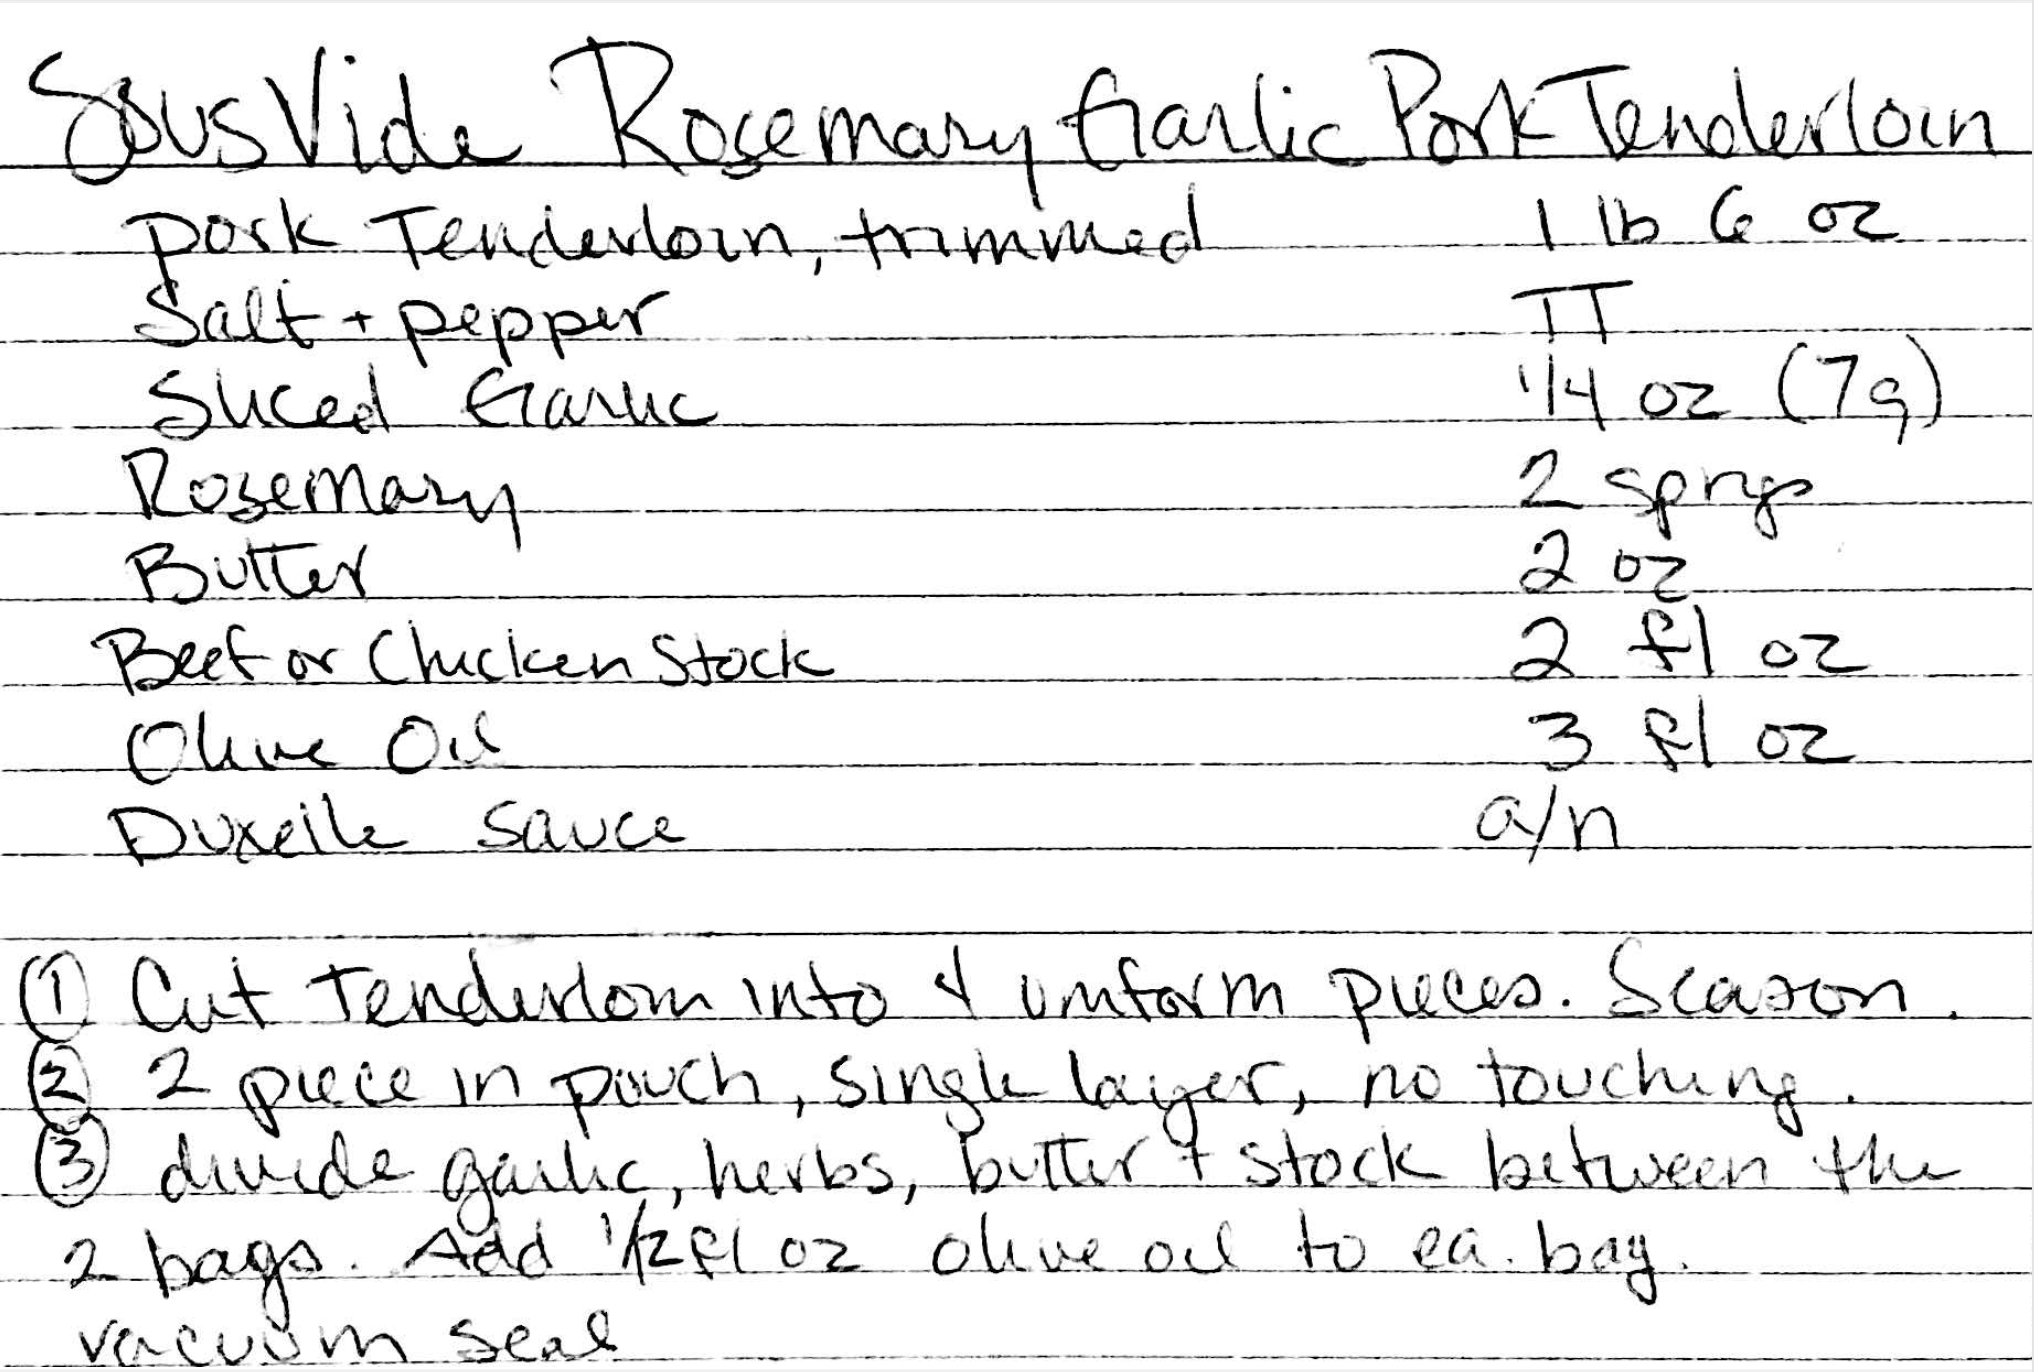 Sous Vide Rosemary Garlic Pork Tenderloin
Pork Tenderloin, trimmed 1 lb 6 oz
Salt + pepper TT
Sliced Garlic 1/4 oz (7g)
Rosemary 2 sprigs
Butter 2 oz
Beef or Chicken Stock 2 fl oz
Olive Oil 3 fl oz
Duxelle Sauce a/n
① Cut Tenderloin into 4 uniform pieces. Season.
② 2 piece in pouch, single layer, no touching.
③ divide garlic, herbs, butter + stock between the
2 bags. Add 1/2 fl oz olive oil to ea. bag.
vacuum seal